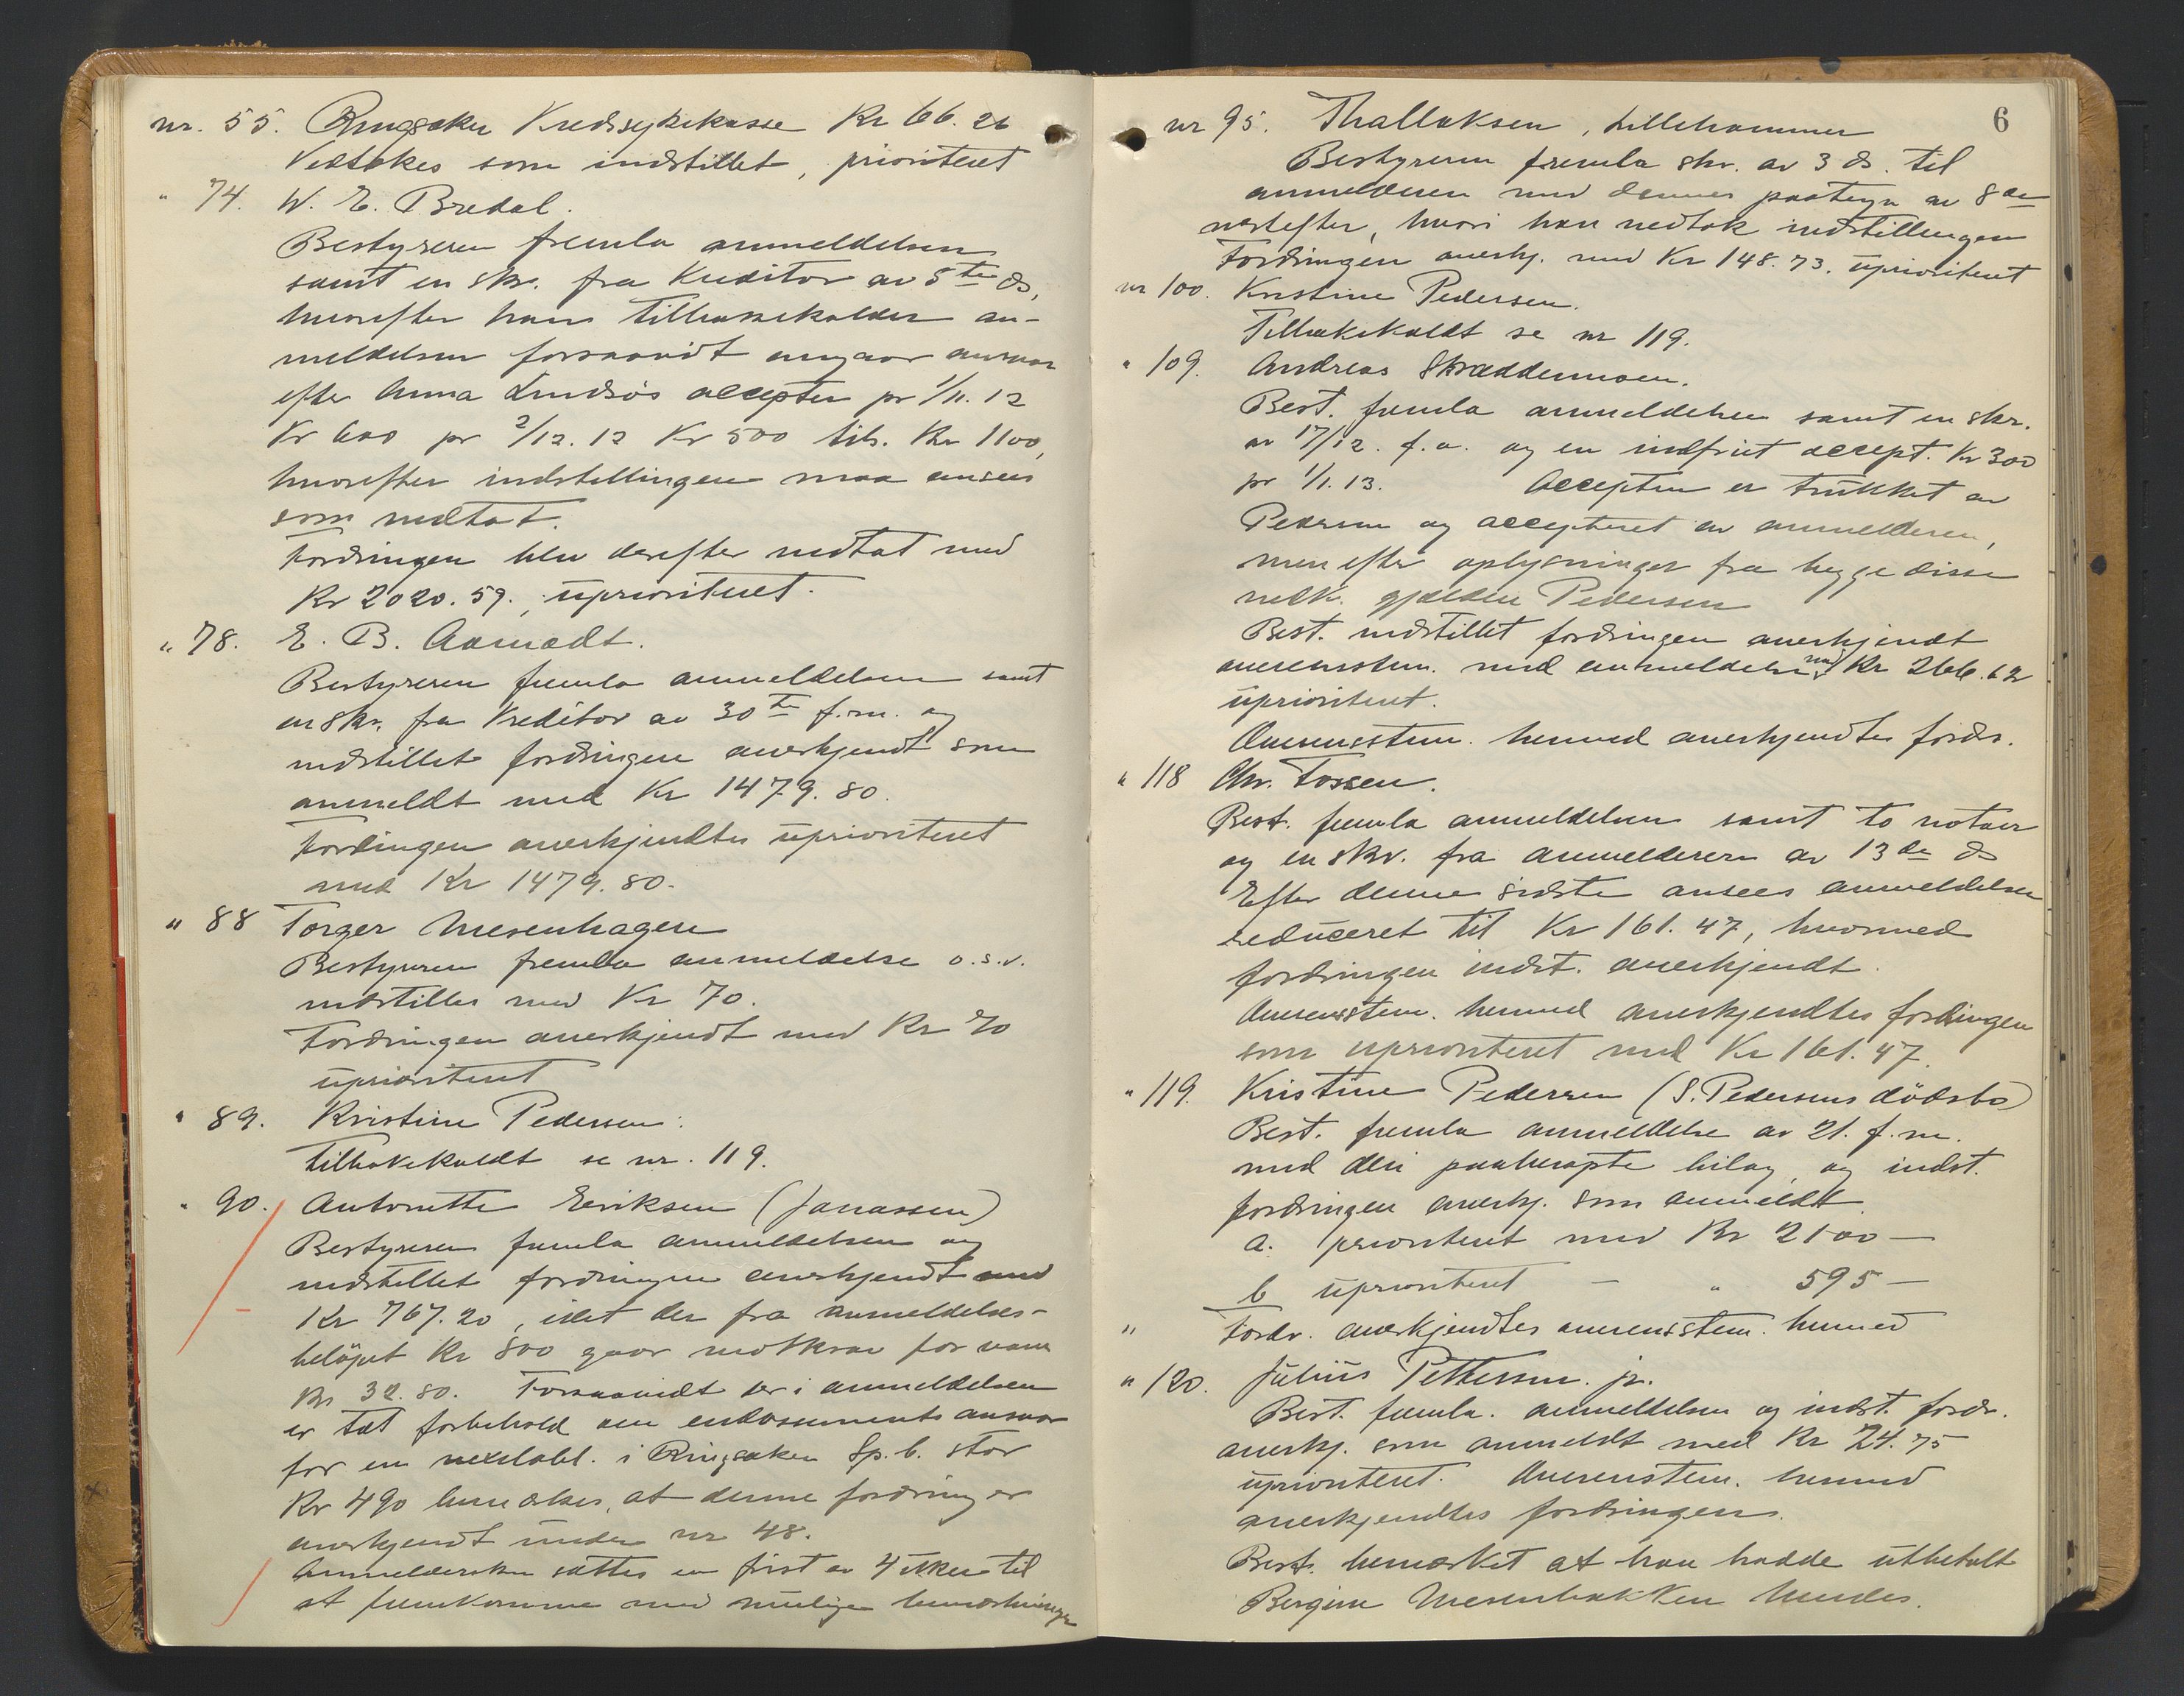 nr. 55. Ringsaker Kredssykekasse Kr 66.26
Vedtokes som indstillet, prioriteret
" 74. W. E. Bredal.
Bestyreren fremla anmeldelsen
samt en skr. fra Kreditor av 5te ds,
hvorefter han tilbakekalder an-
meldelsen forsaavidt angaar ansvar
efter Anna Lundsös accepter pr 1/11. 12
Kr 600 pr 2/12. 12 Kr 500 tils. Kr 1100,
hvorefter indstillingen maa ansees
som vedtat.
Fordringen blev derefter vedtat med
Kr 2020.59., uprioriteret.
" 78. E. B. Aamodt.
Bestyreren fremla anmeldelsen samt
en skr. fra Kreditor av 30te f.m. og
indstillet fordringen anerkjendt som
anmeldt med Kr 1479.80.
Fordringen anerkjendtes uprioriteret
med Kr 1479.80.
" 88 Torger Mesenhagen
Bestyreren fremla anmeldelse o.s.v.
indstilles med Kr 70.
Fordringen anerkjendt med Kr 70
uprioriteret
" 89. Kristine Pedersen.
Tilbakekaldt se nr. 119.
" 90. Antonette Eriksen (Jonassen)
Bestyreren fremla anmeldelsen og
indstillet fordringen anerkjendt med
Kr 767.20, idet der fra anmeldelses-
belöpet Kr 800 gaar motkrav for varer
Kr 32.80. Forsaavidt der i anmeldelsen
er tat forbehold om endossements ansvar
for en vexelobl. i Ringsaker Sp.b. stor
Kr 490 bemerkes, at denne fordring er
anerkjendt under nr 48.
Anmeldersken sattes en frist av 4 uker til
at fremkomme med mulige bemerkninger
6
nr 95. Thallaksen, Lillehammer
Bestyreren fremla skr. av 3 ds. til
anmelderen med dennes paategn av 8de
næstefter, hvori han vedtok indstillingen
Fordringen anerkj. med Kr 148.73. uprioriteret
nr 100. Kristine Pedersen.
Tilbakekaldt se nr 119.
" 109. Andreas Skræddermoen.
Best. fremla anmeldelsen samt en skr.
av 17/12. f.a. og en indfriet accept. Kr 300
pr 1/1. 13. Accepten er trukket av
Pedersen og accepteret av anmelderen,
men efter oplysninger fra begge disse
vedk. gjælden Pedersen
Best. indstillet fordringen anerkjendt
overensstem. med anmeldelsen med Kr 266.62
uprioriteret.
Overensstem. hermed anerkjendtes fordr.
" 118 Chr. Fossen.
Best. fremla anmeldelsen samt to notaer
og en skr. fra anmelderen av 13de ds
Efter denne sidste ansees anmeldelsen
reduceret til Kr 161.47, hvormed
fordringen indst. anerkjendt.
Overensstem. hermed anerkjendtes fordringen
som uprioriteret med Kr 161.47.
" 119. Kristine Pedersen (S. Pedersens dödsbo)
Best. fremla anmeldelse av 21. f.m.
med deri paaberopte bilag og indst.
fordringen anerkj. som anmeldt.
a. prioriteret med Kr 2100 —
b uprioriteret — " 595 —
" Fordr. anerkjendtes overensstem. hermed
" 120. Julius Pettersen. jr.
Best. fremla. anmeldelsen og indst. fordr.
anerkj. som anmeldt med Kr 24.75
uprioriteret. Overenstem. hermed
anerkjendtes fordringen.
Best. bemerket at han hadde utbetalt
Bergine Mesenbakken hendes